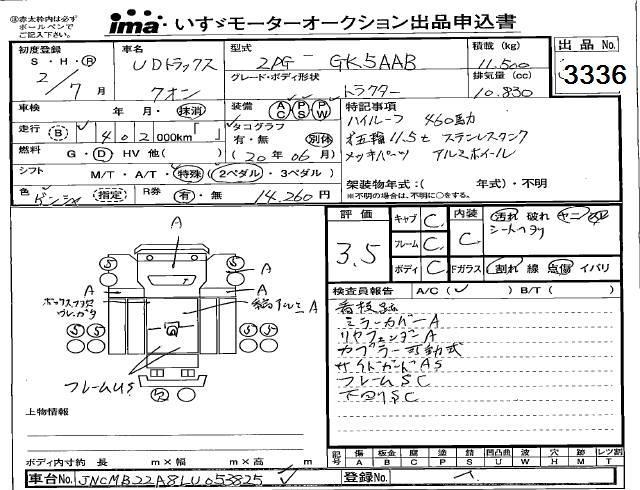 ㊟赤太枠内は必ずボールペンでご記入下さい
ima いすゞモーターオークション出品申込書
初度登録 S・H・Ⓡ 2/7月
車名 UDトラックス クオン
型式 2PG- GK5AAB
グレード・ボディ形状 トラクター
積載(kg) 11,500
排気量(cc) 10,830
出品No. 3336
車検 年・月・抹消
装備 AC PS PW
特記事項
ハイルーフ 460馬力
第五輪11.5t ステンレスタンク
メッキパーツ アルミホイール
走行 B 402000km「 」
タコグラフ 有・無 別体
(20年06月)
燃料 G・D HV 他( )
シフト M/T・A/T・特殊 (2ペダル・3ペダル)
架装物年式:( 年式)・不明
※不明の場合は、不明に○をする。
色 ゲンシャ 指定
R券 有・無 14,260円
評価 3.5
キャブ C
フレーム C
ボディ C
内装 C
汚れ 破れ ヤニ
シートヘタリ
Fガラス 割れ 線 点傷 イバリ
検査員報告 A/C( ) B/T( )
看板跡
ミラーカバーA
リヤフェンダーA
カプラー可動式
サイドガードAS
フレームSC
下回りSC
A
S S
A
A A
A
S S S S
フレームUS
上物情報
ボディ内寸約 長 m×幅 m×高 m
記号 傷 A 板金 B 腐 C 塗 P 錆 S 凹凸曲 U 波 W 穴 H 跡 M レツ割 T
車台No. JNCMB22A8LU053825
登録No.